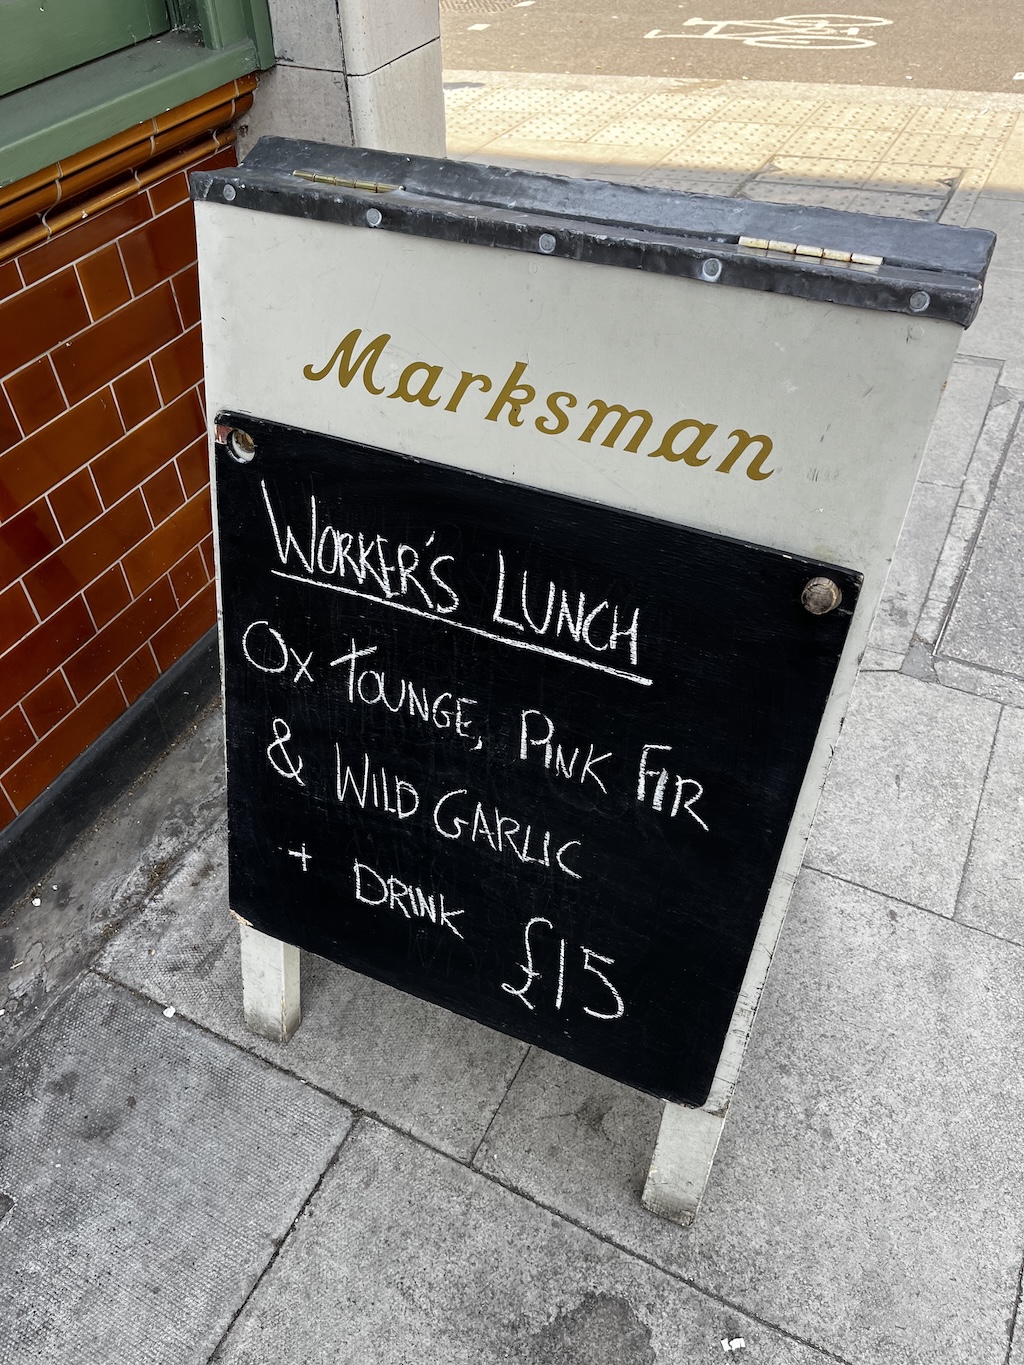 Marksman
WORKER'S LUNCH
OX TOUNGE, PINK FIR
& WILD GARLIC
+ DRINK £15